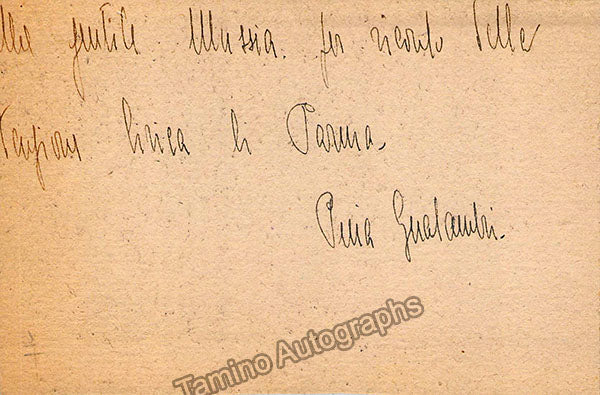 Alla gentile Mussia per ricordo della
Stagione lirica di Parma.
Pina
Tamino Autographs